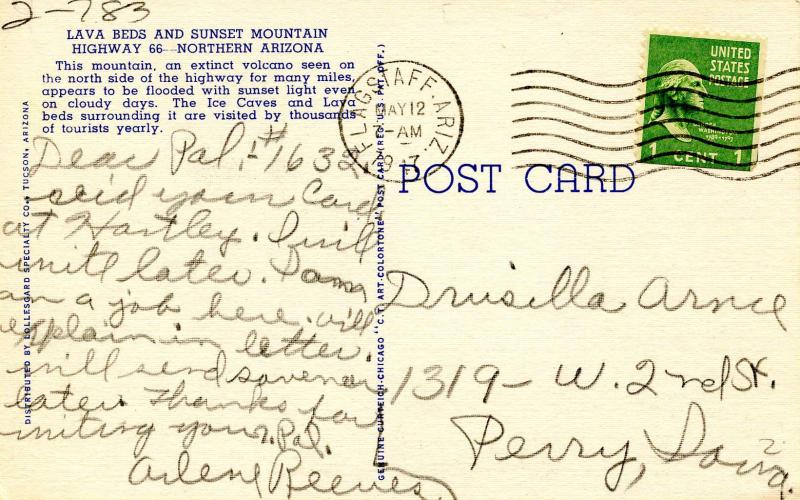 2-783
LAVA BEDS AND SUNSET MOUNTAIN
HIGHWAY 66—NORTHERN ARIZONA
This mountain, an extinct volcano seen on
the north side of the highway for many miles,
appears to be flooded with sunset light even
on cloudy days. The Ice Caves and Lava
beds surrounding it are visited by thousands
of tourists yearly.
Dear Pal, #1632
recid your Card
at Hartley. I will
write later. I am
on a job here. will
explain in letter.
will send sovenor
later. Thanks for
writing your Pal.
Arlene Reeves
DISTRIBUTED BY BOLLESGARD SPECIALTY CO., TUCSON, ARIZONA
GENUINE CURTEICH-CHICAGO "C.T. ART-COLORTONE" POST CARD (REG. U.S. PAT. OFF.)
FLAGSTAFF, ARIZ.
MAY 12
7-AM
UNITED
STATES
POSTAGE
WASHINGTON
1 CENT 1
POST CARD
Drusilla Arnce
1319- W. 2nd St.
Perry, Iowa.